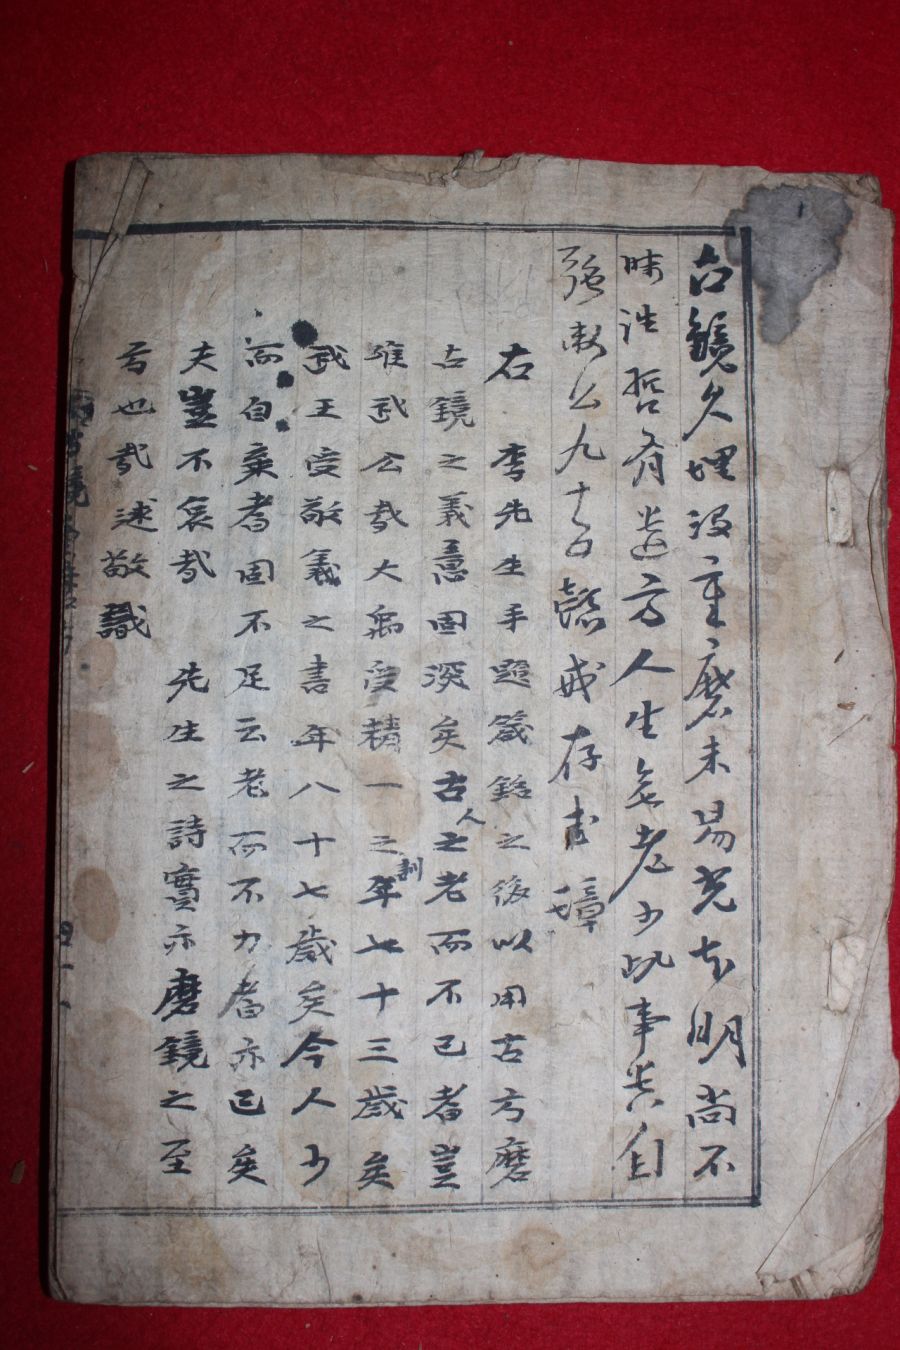 古鏡久埋沒重磨未易光本明尚不
昧往哲有遺方人生無老少此事貴自
强衛公九十五懿戒存圭璋
右 李先生手題箴銘之後以用古方磨
古鏡之義意固深矣古人之老而不已者豈
唯武公哉大禹受精一之訓年七十三歲矣
武王受敬義之書年八十七歲矣今人少
而自棄者固不足云老而不力者亦已矣
夫豈不哀哉 先生之詩實亦磨鏡之至
方也哉述敬識